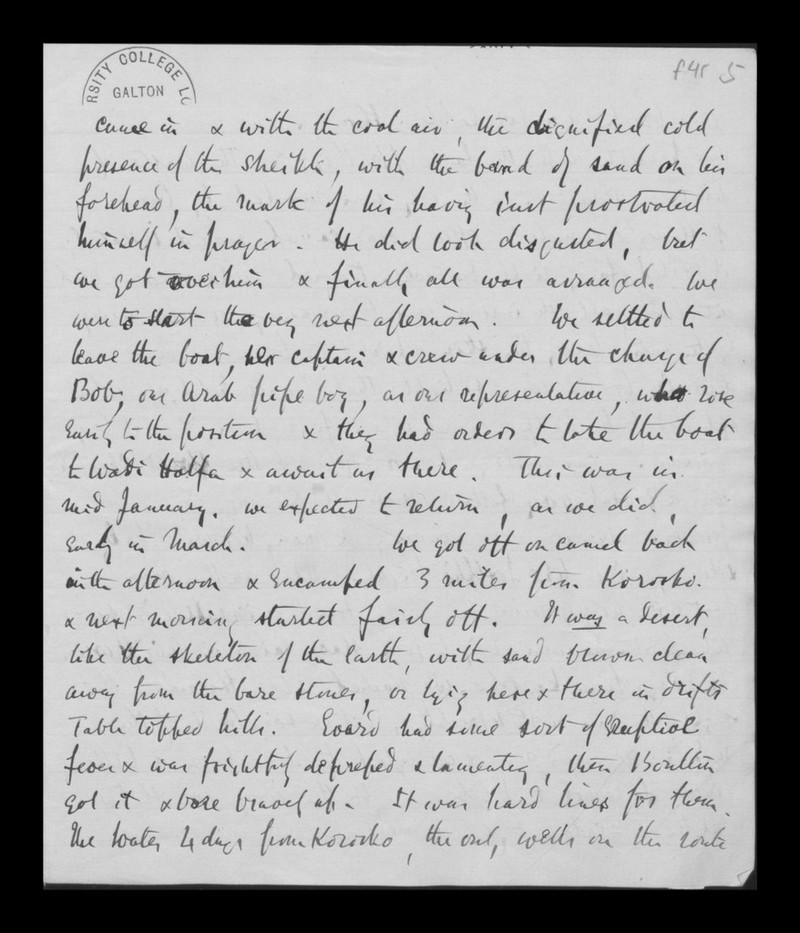 f4r 5
RSITY COLLEGE LO
GALTON
came in & with the cool air, the dignified cold
presence of the Sheikh, with the band of sand on his
forehead, the mark of his having just prostrated
himself in prayer. He did look disgusted, but
we got over him & finally all was arranged. We
were to start the very next afternoon. We settled to
leave the boat, her captain & crew under the charge of
Bob, our Arab pipe boy, as our representative, who rose
easily to the position & they had orders to take the boat
to Wadi Halfa & await us there. This was in
mid January. we expected to return, as we did,
early in March. We got off on camel back
in the afternoon & encamped 3 miles from Korosko.
& next morning started fairly off. It was a desert,
like the skeleton of the earth, with sand blown clean
away from the bare stones, or lying here & there in drifts
Table topped hills. had some sort of eruptive
fever & was frightfully depressed & lamenting, then Boulton
got it & bore bravely up. It was hard lines for them.
The Water 4 days from Korosko, the only wells on the route